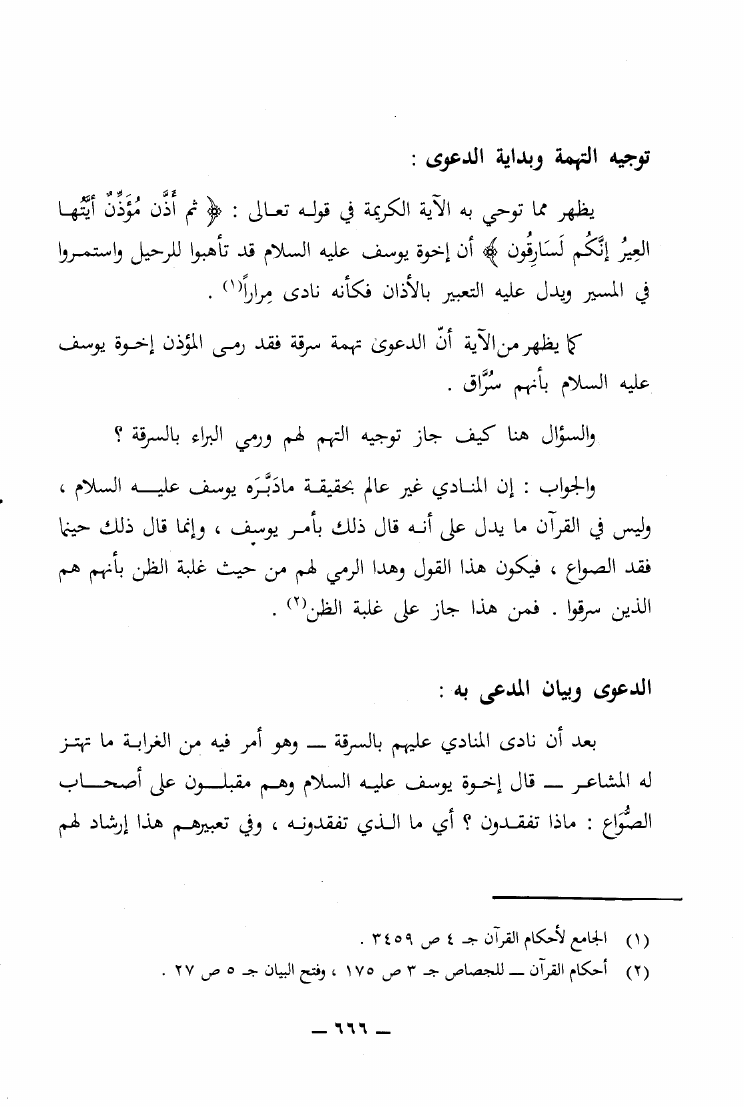 توجيه التهمة وبداية الدعوى :
يظهر مما توحي به الآية الكريمة في قوله تعالى : ﴿ ثم أَذَّن مُؤَذِّنٌ أيَّتُها
العِيرُ إنَّكُم لَسَارِقُون ﴾ أن إخوة يوسف عليه السلام قد تأهبوا للرحيل واستمروا
في المسير ويدل عليه التعبير بالأذان فكأنه نادى مِراراً(١) .
كما يظهر من الآية أنّ الدعوى تهمة سرقة فقد رمى المؤذن إخوة يوسف
عليه السلام بأنهم سُرَّاق .
والسؤال هنا كيف جاز توجيه التهم لهم ورمي البراء بالسرقة ؟
والجواب : إن المنادي غير عالم بحقيقة مادَبَّرَه يوسف عليه السلام ،
وليس في القرآن ما يدل على أنه قال ذلك بأمر يوسف ، وإنما قال ذلك حينما
فقد الصواع ، فيكون هذا القول وهدا الرمي لهم من حيث غلبة الظن بأنهم هم
الذين سرقوا . فمن هذا جاز على غلبة الظن(٢) .
الدعوى وبيان المدعى به :
بعد أن نادى المنادي عليهم بالسرقة — وهو أمر فيه من الغرابة ما تهتز
له المشاعر — قال إخوة يوسف عليه السلام وهم مقبلون على أصحاب
الصُّوَاع : ماذا تفقدون ؟ أي ما الذي تفقدونه ، وفي تعبيرهم هذا إرشاد لهم
(١) الجامع لأحكام القرآن جـ ٤ ص ٣٤٥٩ .
(٢) أحكام القرآن — للجصاص جـ ٣ ص ١٧٥ ، وفتح البيان جـ ٥ ص ٢٧ .
— ٦٦٦ —